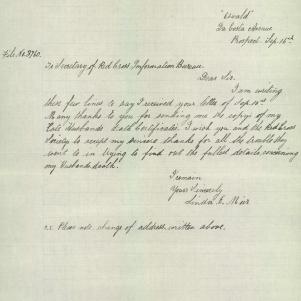 "Oswald"
Da Costa Avenue
Prospect. Sep. 16th
File No. 3760.
To Secretary of Red Cross Information Bureau.
Dear Sir.
I am writing
these few lines to say I received your letter of Sep. 10th
Many thanks to you for sending me the copys of my
Late Husbands Death Certificates. I wish you and the Red Cross
Society to accept my sincere thanks for all the trouble they
went to in trying to find out the fullest details concerning
my Husbands death.
I remain
Yours Sincerely
Linda
P.S. Please note change of address written above.